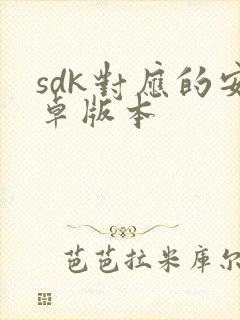 sdk對應的安
卓版本
芭芭拉米库尔